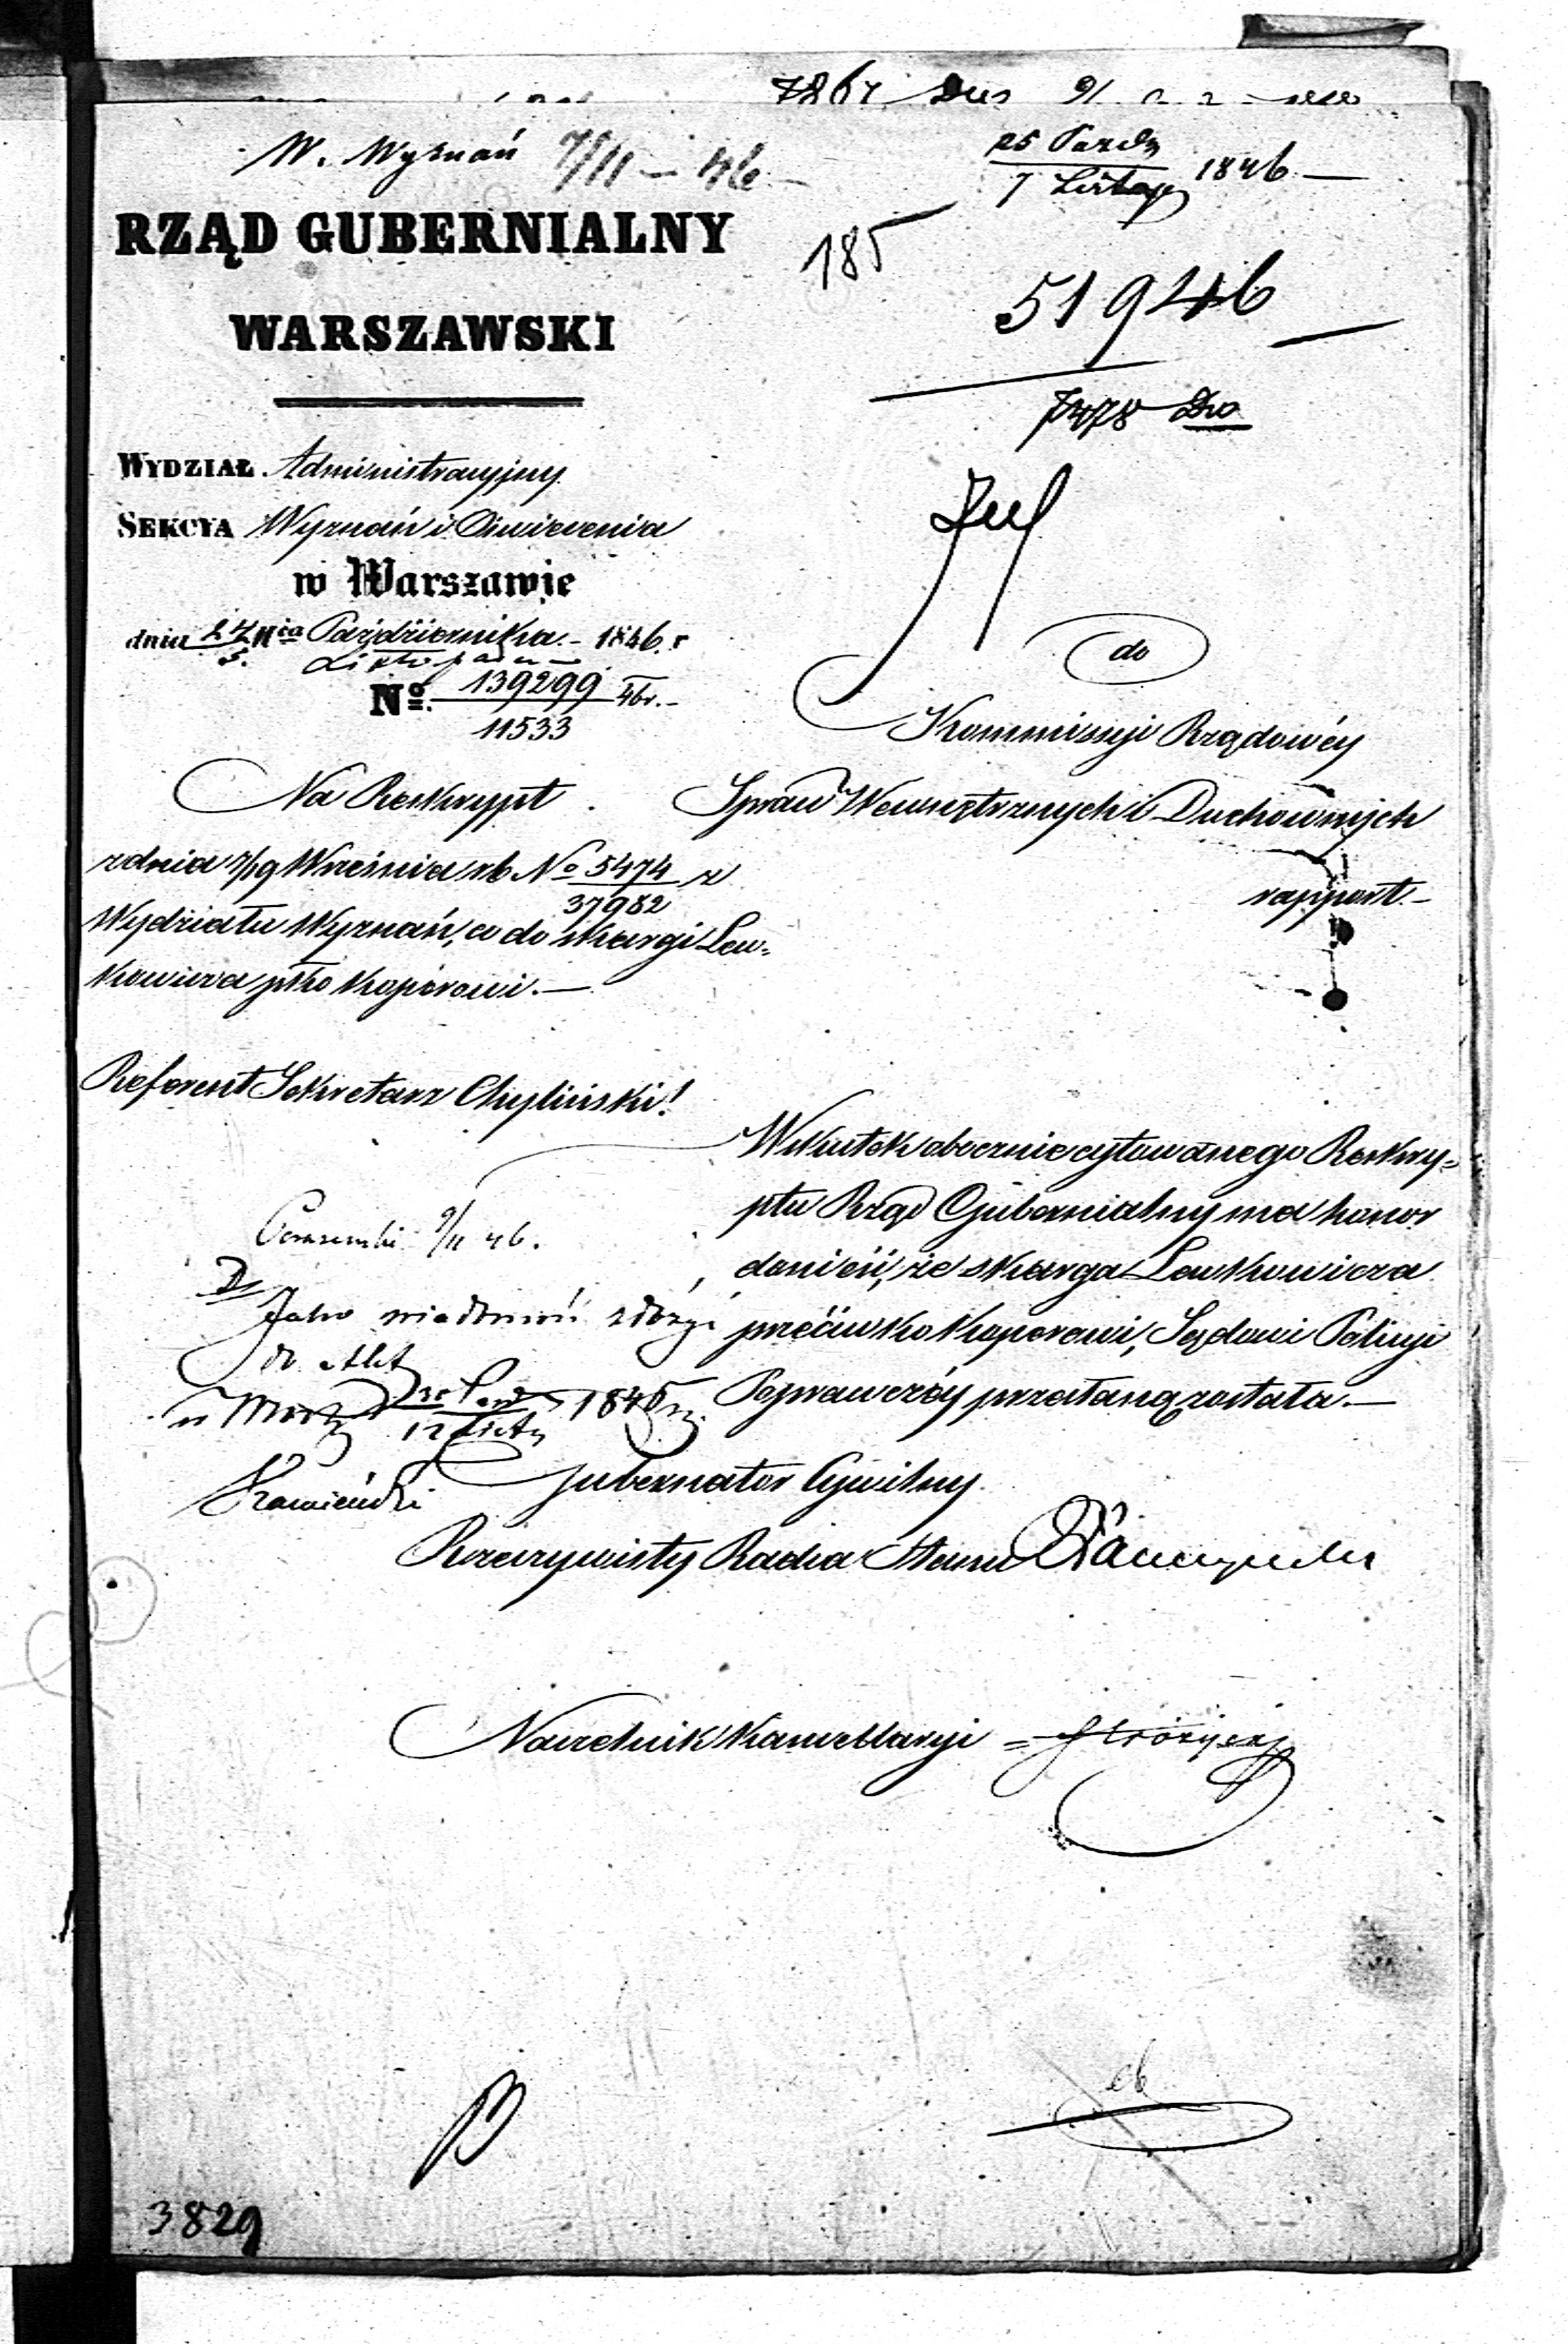 W. Wyznań 7/11 – 46
25 Pazdz
7 Listop 1846
185
RZĄD GUBERNIALNY
WARSZAWSKI
51946
7478
WYDZIAŁ Administracyjny
SEKCYA Wyznań i Oświecenia
w Warszawie
dnia 24 Października 1846 r
5 Listopada
No. 139299 46r.
11533
do
Kommissyi Rządowéy
Spraw Wewnętrznych i Duchownych
rapport.
Na Reskrypt
z dnia 7/19 Września rb No 5474 z
37982
Wydziału Wyznań, co do skargi Lew-
kowicza ptko Koperowi.—
Referent Sekretarz Chyliński!
Wskutek obocznie cytowanego Reskry-
ptu Rząd Gubernialny ma honor
donieść, że skarga Lewkowicza
przeciwko Koperowi, Sądowi Policyi
Poprawczéy przesłaną została.—
9/11 46.
Jako wiadomość złożyć
do Akt
12 Listop 1846
Gubernator Cywilny
Rzeczywisty Radca Stanu
Naczelnik Kancellaryi
3829